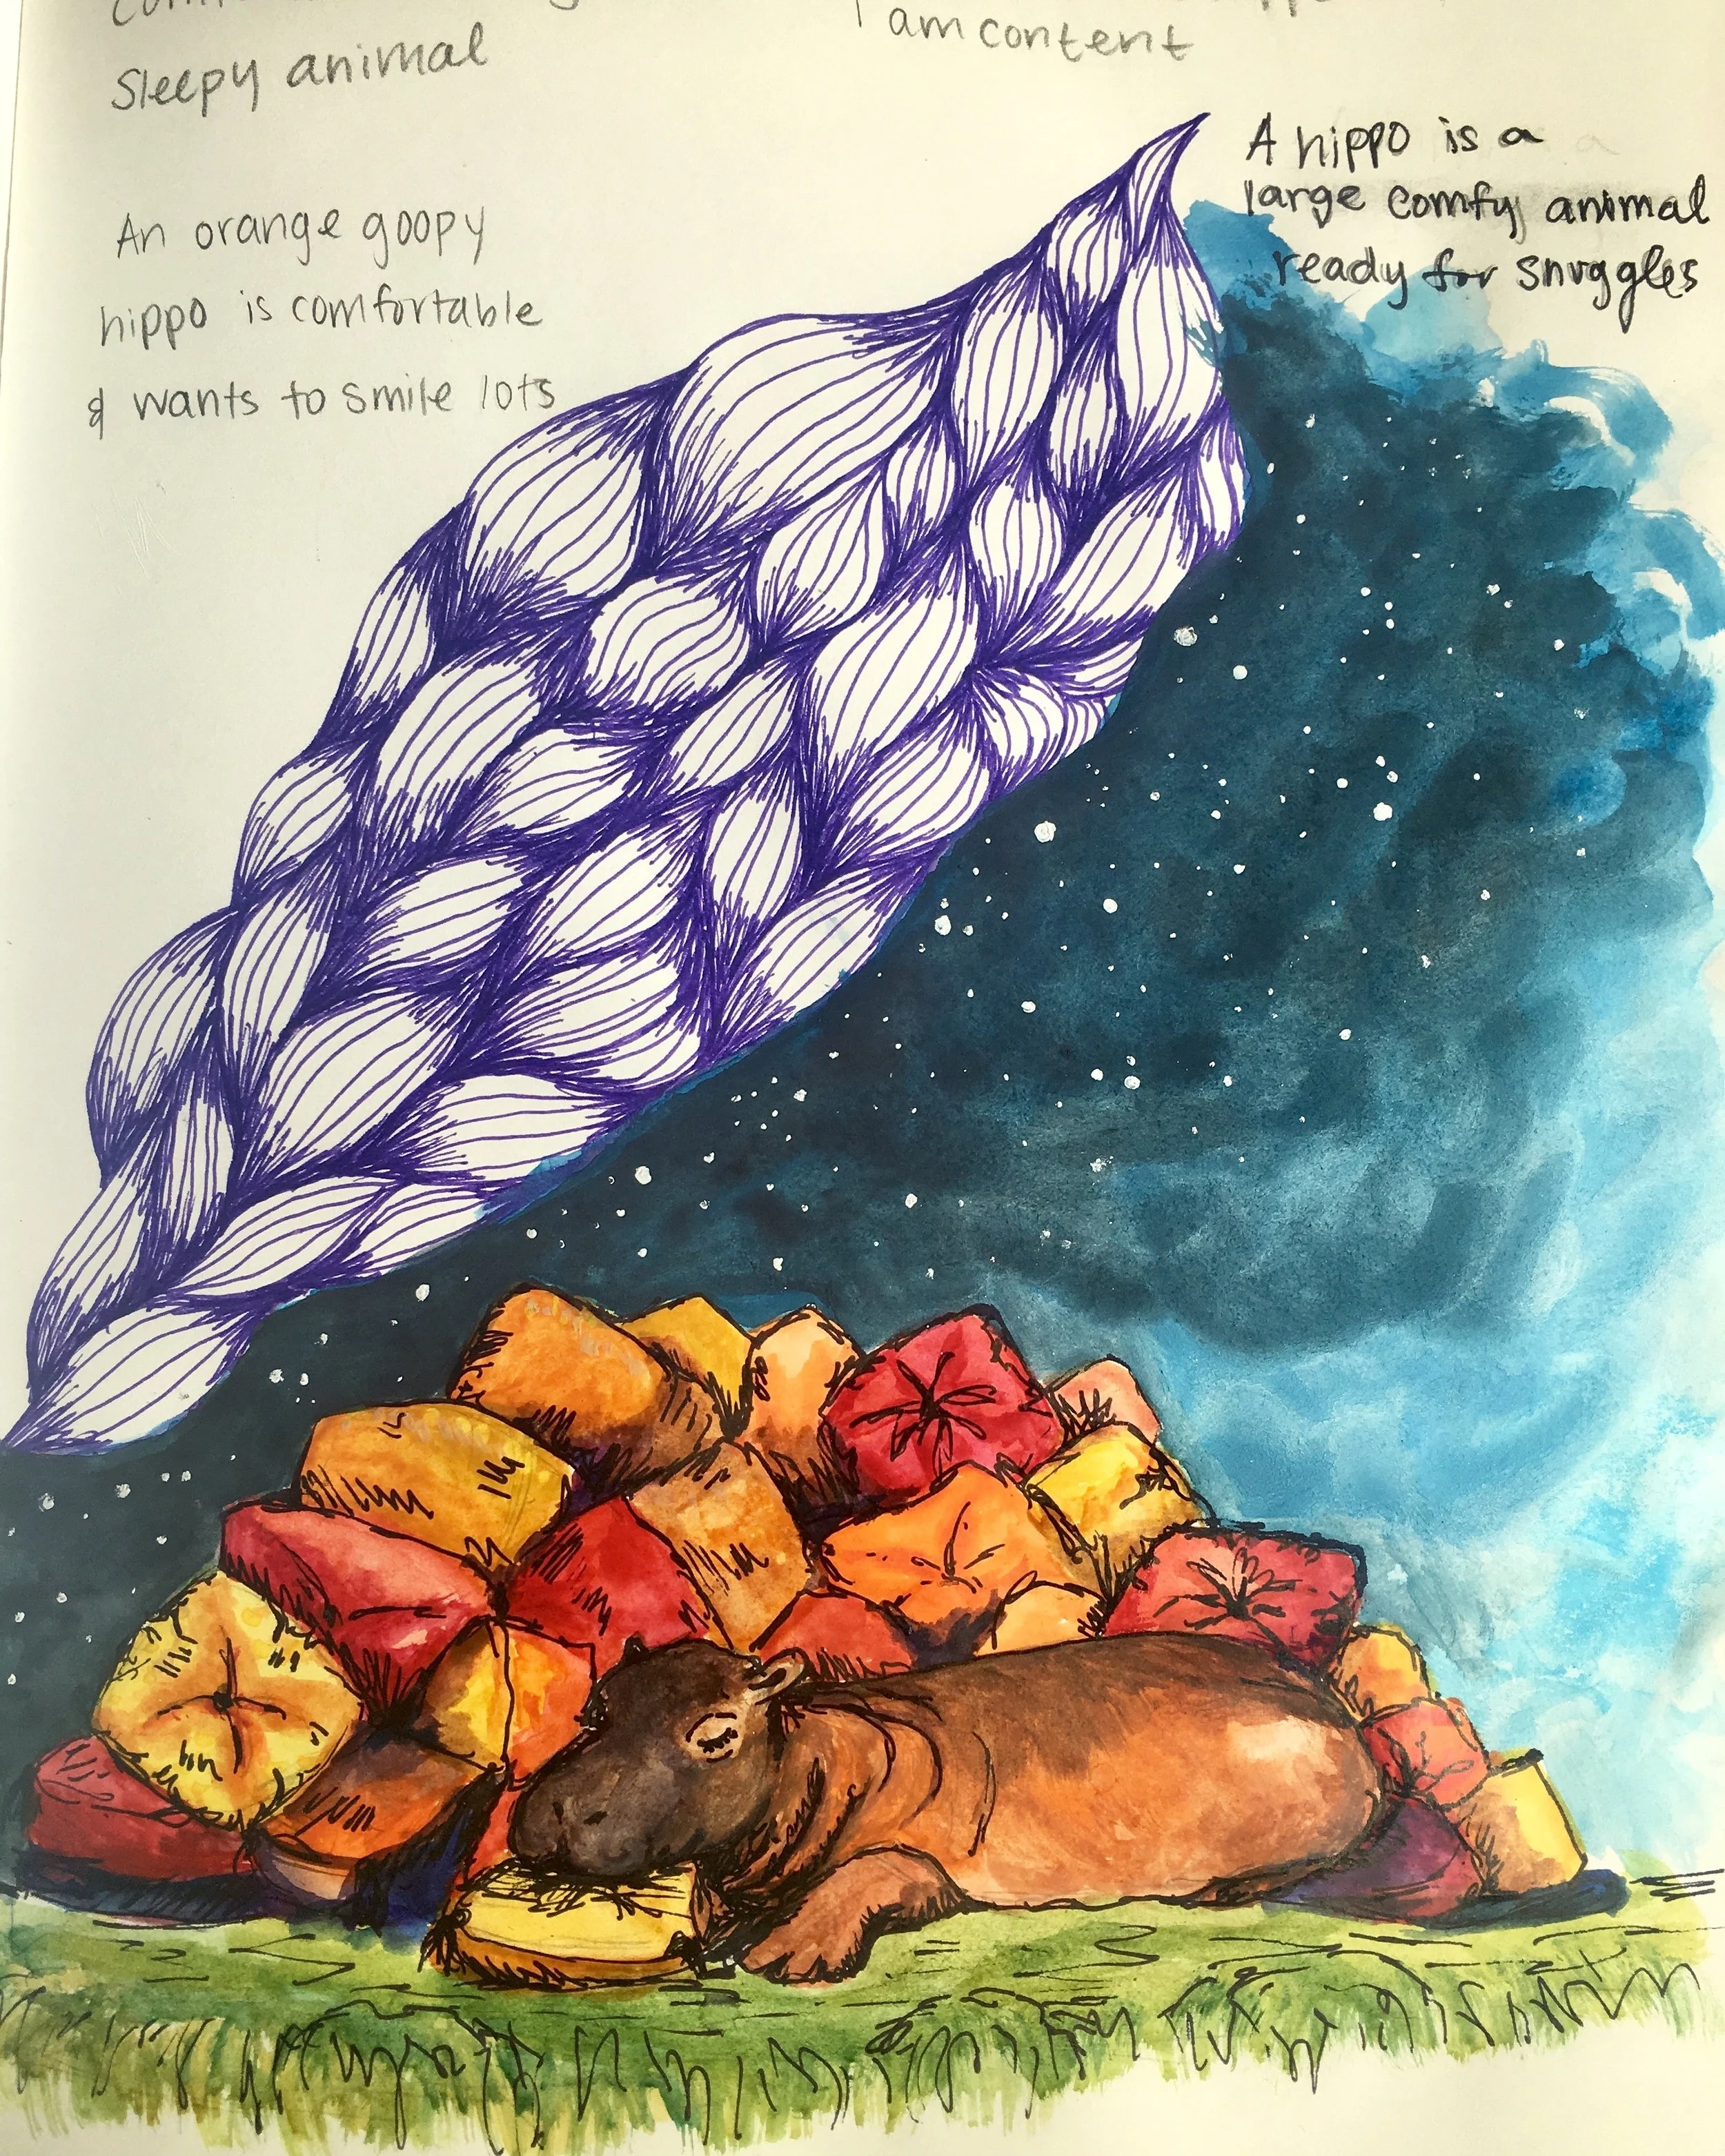 Sleepy animal
I am content
An orange goopy
hippo is comfortable
& wants to smile lots
A hippo is a
large comfy animal
ready for snuggles